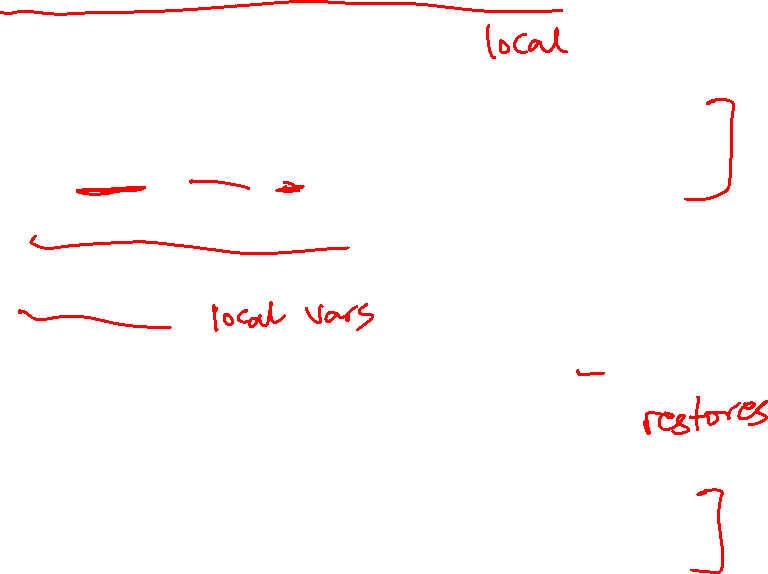 local
local vars
restores